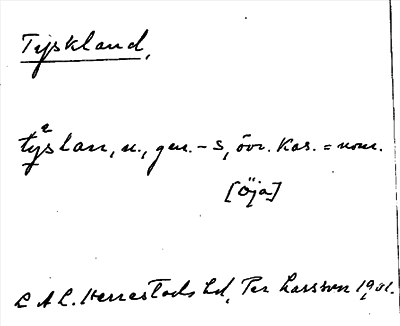 Tyskland,
tÿ²slan, n., gen. -s, övr. kas. = nom.
[Öja]
L A L. Herrestads hd, Per Larsson 1901.